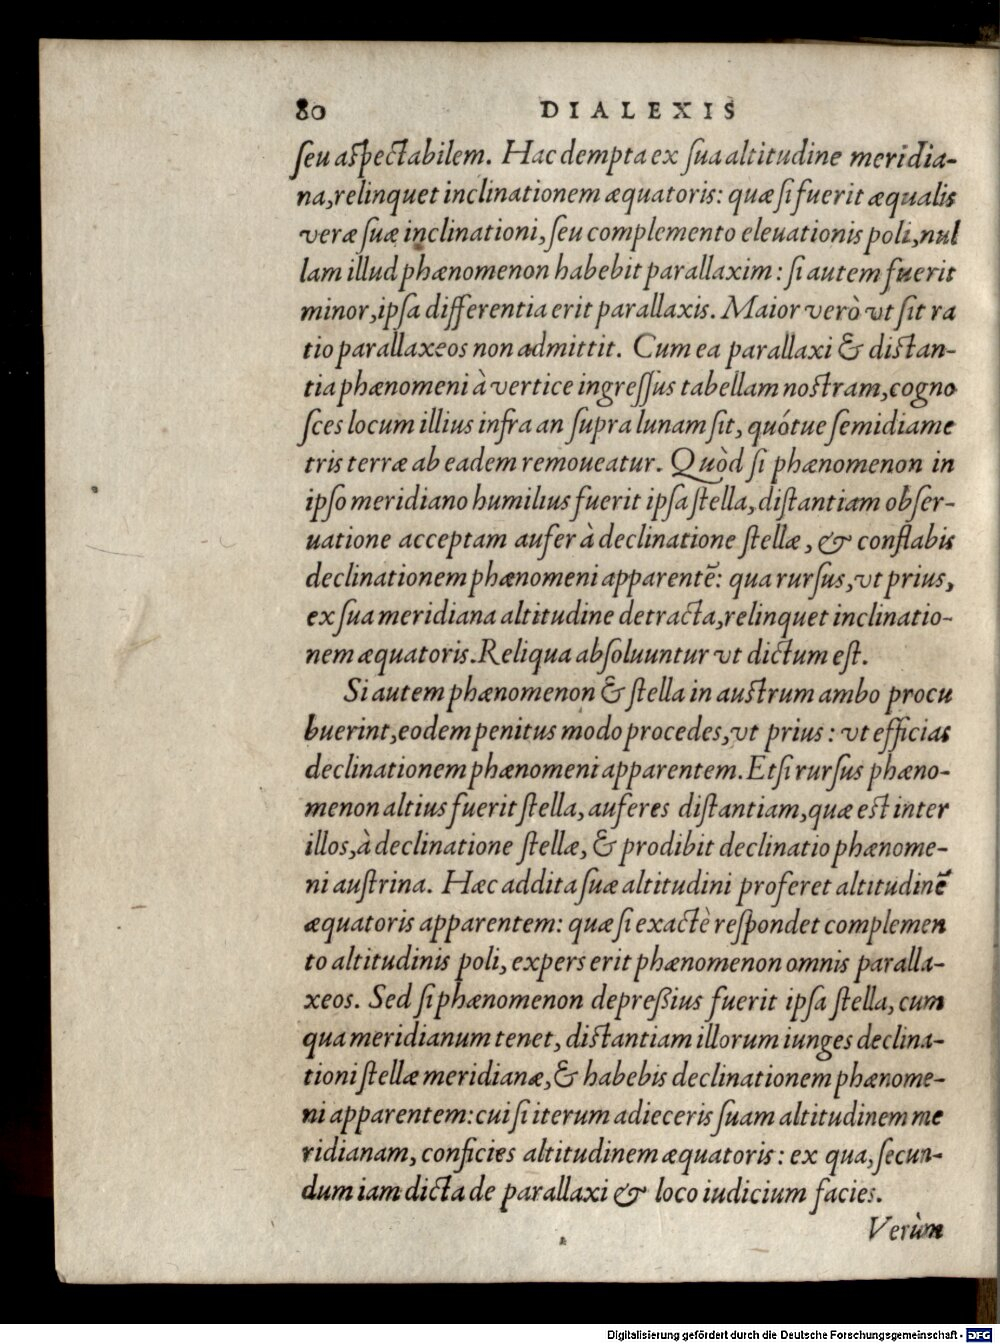 80 DIALEXIS
ſeu aſpectabilem. Hac dempta ex ſua altitudine meridia-
na, relinquet inclinationem æquatoris: quæ ſi fuerit æqualis
veræ ſuæ inclinationi, ſeu complemento eleuationis poli, nul
lam illud phænomenon habebit parallaxim: ſi autem fuerit
minor, ipſa differentia erit parallaxis. Maior verò vt ſit ra
tio parallaxeos non admittit. Cum ea parallaxi & diſtan-
tia phænomeni à vertice ingreſſus tabellam noſtram, cogno
ſces locum illius infra an ſupra lunam ſit, quótue ſemidiame
tris terræ ab eadem remoueatur. Quòd ſi phænomenon in
ipſo meridiano humilius fuerit ipſa ſtella, diſtantiam obſer-
uatione acceptam aufer à declinatione ſtellæ, & conflabis
declinationem phænomeni apparentē: qua rurſus, vt prius,
ex ſua meridiana altitudine detracta, relinquet inclinatio-
nem æquatoris. Reliqua abſoluuntur vt dictum eſt.
Si autem phænomenon & ſtella in auſtrum ambo procu
buerint, eodem penitus modo procedes, vt prius: vt efficias
declinationem phænomeni apparentem. Et ſi rurſus phæno-
menon altius fuerit ſtella, auferes diſtantiam, quæ eſt inter
illos, à declinatione ſtellæ, & prodibit declinatio phænome-
ni auſtrina. Hæc addita ſuæ altitudini proferet altitudinē
æquatoris apparentem: quæ ſi exactè reſpondet complemen
to altitudinis poli, expers erit phænomenon omnis paralla-
xeos. Sed ſi phænomenon depreßius fuerit ipſa ſtella, cum
qua meridianum tenet, diſtantiam illorum iunges declina-
tioni ſtellæ meridianæ, & habebis declinationem phænome-
ni apparentem: cui ſi iterum adieceris ſuam altitudinem me
ridianam, conficies altitudinem æquatoris: ex qua, ſecun-
dum iam dicta de parallaxi & loco iudicium facies.
Verùm
Digitalisierung gefördert durch die Deutsche Forschungsgemeinschaft - DFG